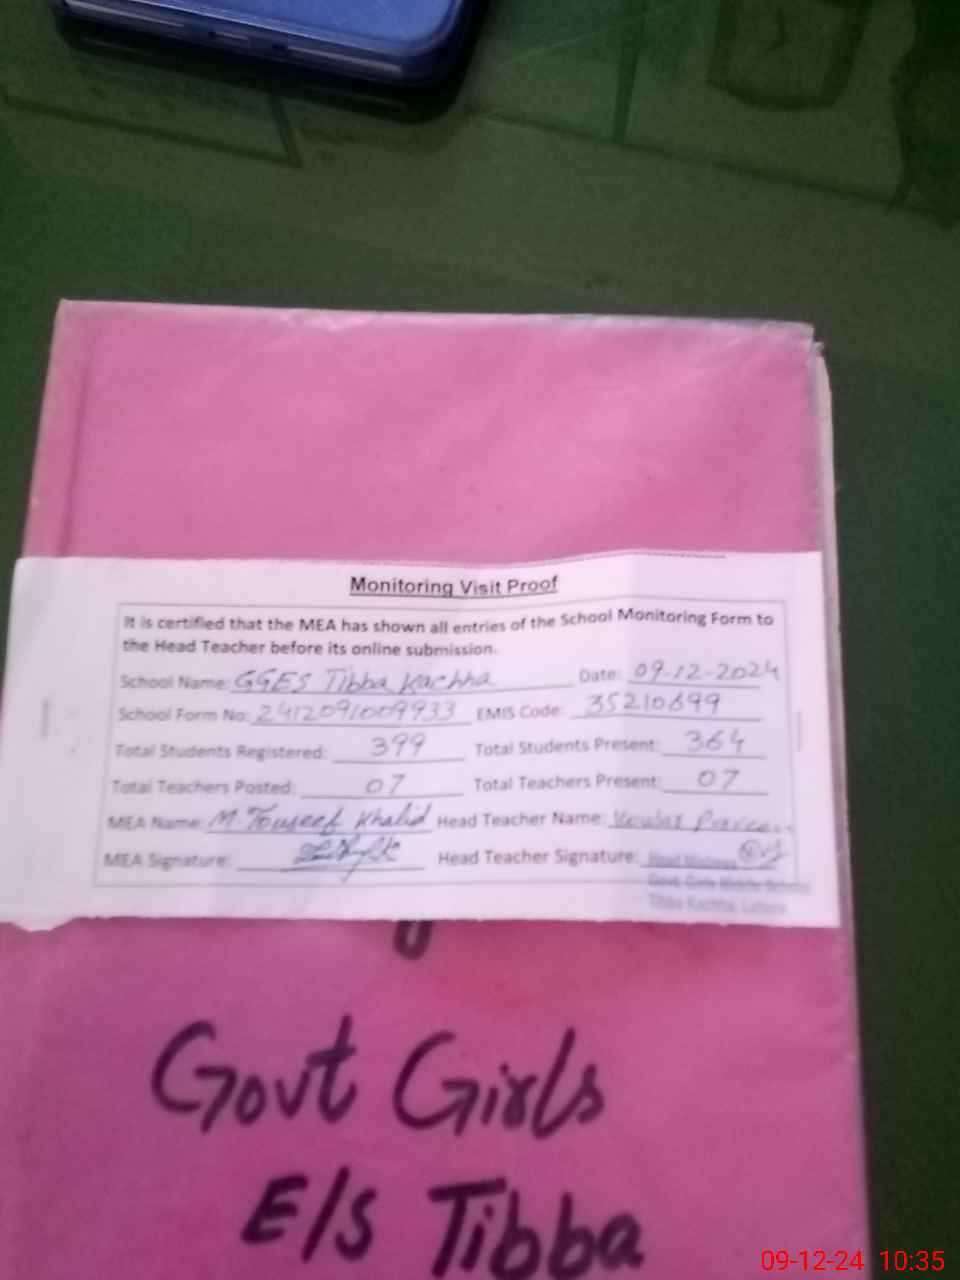 Monitoring Visit Proof
It is certified that the MEA has shown all entries of the School Monitoring Form to
the Head Teacher before its online submission.
School Name: GGES Tibba Kachha Date: 09-12-2024
School Form No: 2412091009933 EMIS Code: 35210699
Total Students Registered: 399 Total Students Present: 364
Total Teachers Posted: 07 Total Teachers Present: 07
MEA Name: M. Touseef Khalid Head Teacher Name:
MEA Signature: Head Teacher Signature:
Govt. Girls Middle School
Tibba Kachha, Lahore
Govt Girls
E/S Tibba
09-12-24 10:35